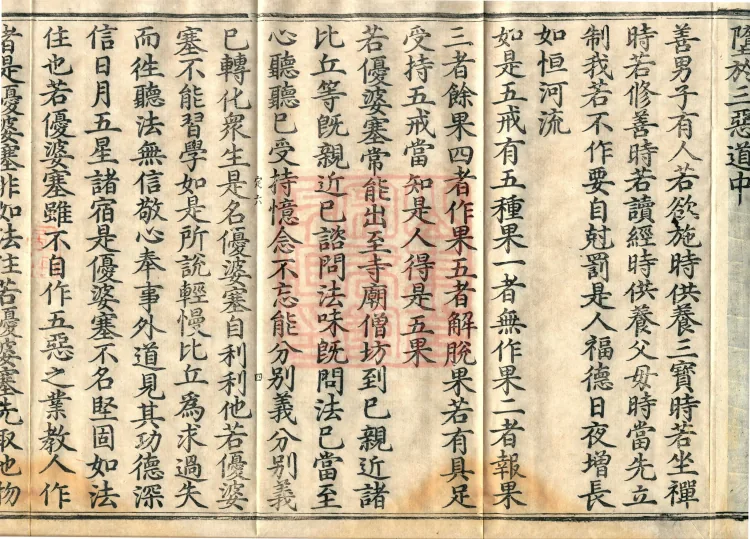 墮於三惡道中
善男子有人若欲施時供養三寶時若坐禪
時若修善時若讀經時供養父母時當先立
制我若不作要自尅罰是人福德日夜增長
如恒河流
如是五戒有五種果一者無作果二者報果
三者餘果四者作果五者解脫果若有具足
受持五戒當知是人得是五果
若優婆塞常能出至寺廟僧坊到已親近諸
比丘等旣親近已諮問法味旣問法已當至
心聽聽已受持憶念不忘能分別義分別義
定六 四
已轉化衆生是名優婆塞自利利他若優婆
塞不能習學如是所說輕慢比丘爲求過失
而徃聽法無信敬心奉事外道見其功德深
信日月五星諸宿是優婆塞不名堅固如法
住也若優婆塞雖不自作五惡之業教人作
者是優婆塞非如法住若優婆塞先取他物